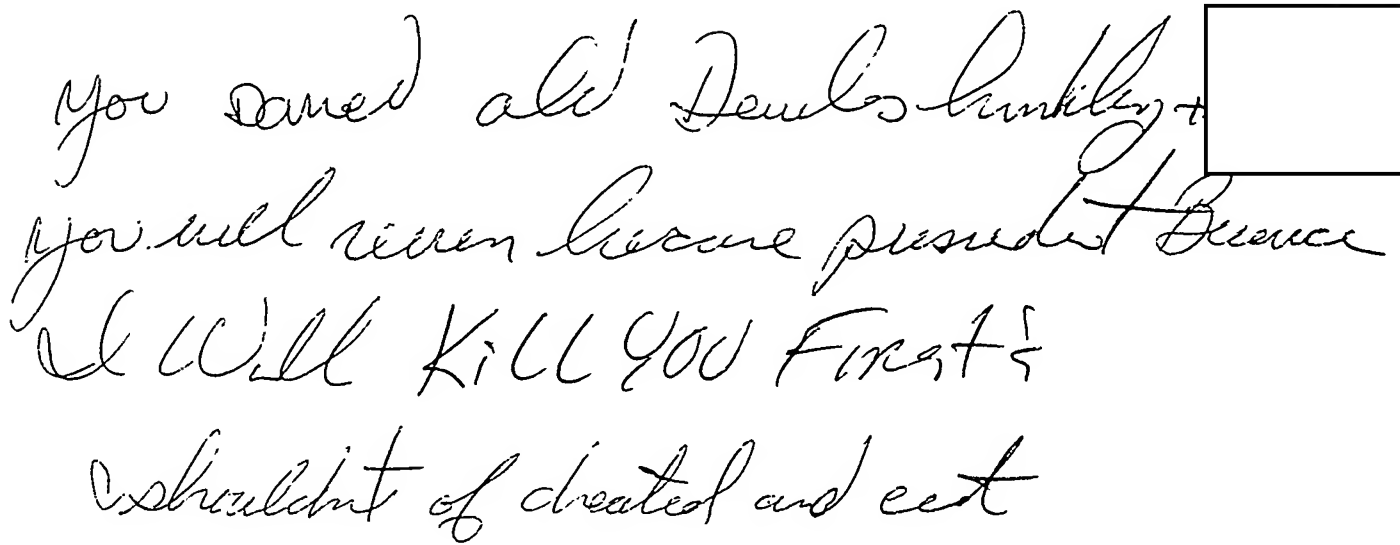 you Damed old Devils
you will never become president Because
I Will Kill YOU First &
shouldnt of cheated and cut